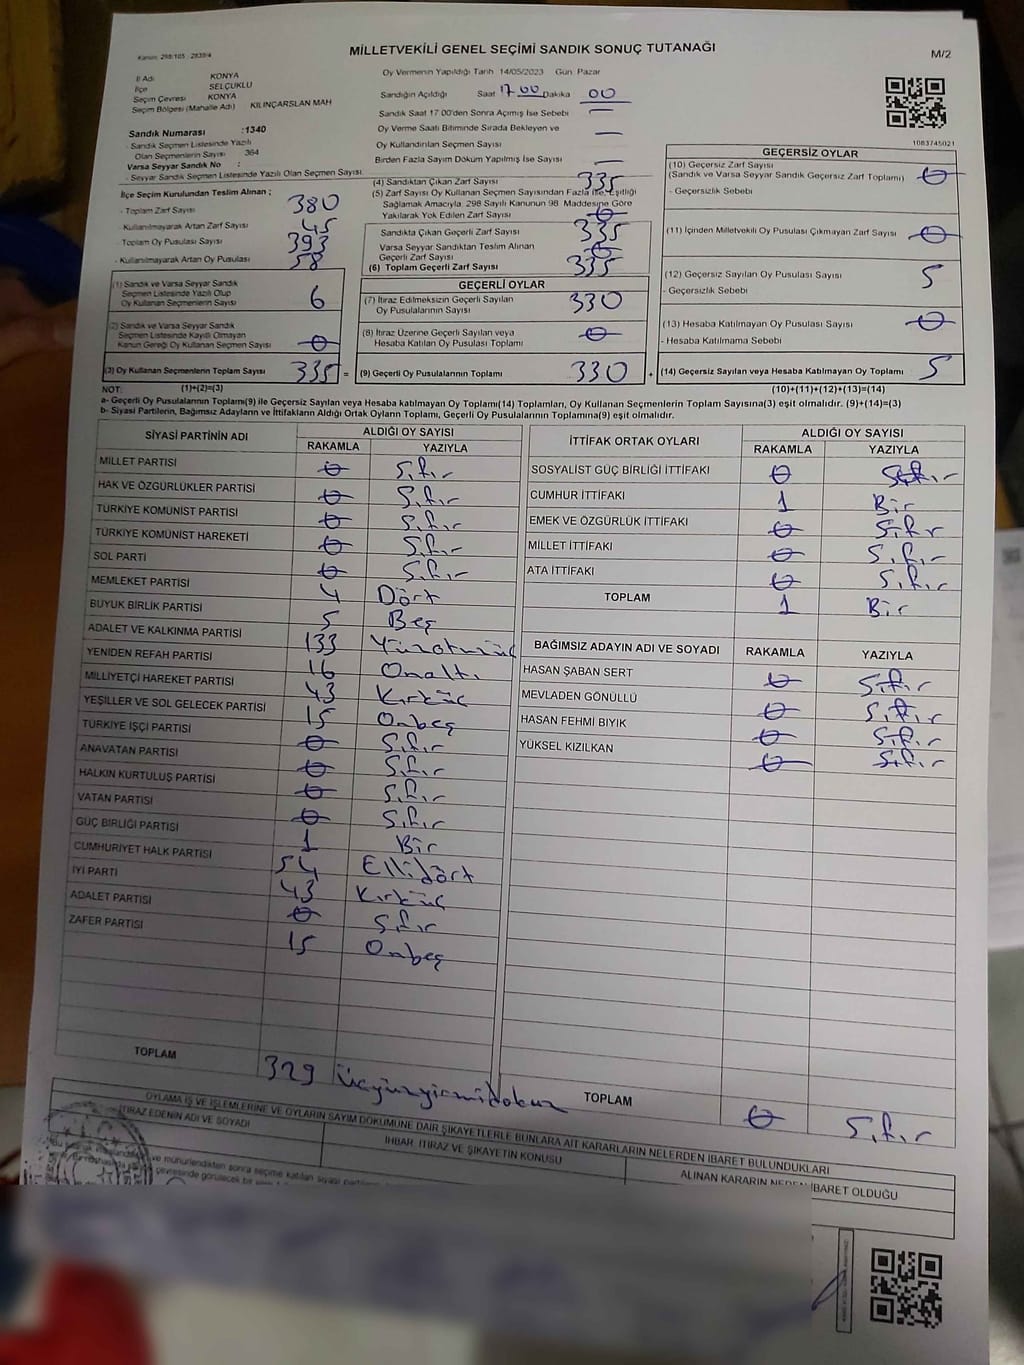 Kanun: 298/105 - 2839/4
MİLLETVEKİLİ GENEL SEÇİMİ SANDIK SONUÇ TUTANAĞI
M/2
İl Adı KONYA
İlçe SELÇUKLU
Seçim Çevresi KONYA
Seçim Bölgesi (Mahalle Adı) KILINÇARSLAN MAH
Sandık Numarası :1340
- Sandık Seçmen Listesinde Yazılı
Olan Seçmenlerin Sayısı 364
Varsa Seyyar Sandık No :
- Seyyar Sandık Seçmen Listesinde Yazılı Olan Seçmen Sayısı
Oy Vermenin Yapıldığı Tarih 14/05/2023 Gün: Pazar
Sandığın Açıldığı Saat 17.00 Dakika 00
Sandık Saat 17.00'den Sonra Açılmış İse Sebebi —
Oy Verme Saati Bitiminde Sırada Bekleyen ve
Oy Kullandırılan Seçmen Sayısı —
Birden Fazla Sayım Döküm Yapılmış İse Sayısı —
1083745021
İlçe Seçim Kurulundan Teslim Alınan ;
- Toplam Zarf Sayısı 380
- Kullanılmayarak Artan Zarf Sayısı 45
- Toplam Oy Pusulası Sayısı 393
- Kullanılmayarak Artan Oy Pusulası 58
(1) Sandık ve Varsa Seyyar Sandık
Seçmen Listesinde Yazılı Olup
Oy Kullanan Seçmenlerin Sayısı 6
(2) Sandık ve Varsa Seyyar Sandık
Seçmen Listesinde Kayıtlı Olmayan
Kanun Gereği Oy Kullanan Seçmen Sayısı 0
(3) Oy Kullanan Seçmenlerin Toplam Sayısı 335 =
(4) Sandıktan Çıkan Zarf Sayısı 335
(5) Zarf Sayısı Oy Kullanan Seçmen Sayısından Fazla ise, Eşitliği
Sağlamak Amacıyla 298 Sayılı Kanunun 98. Maddesine Göre
Yakılarak Yok Edilen Zarf Sayısı 0
Sandıkta Çıkan Geçerli Zarf Sayısı 335
Varsa Seyyar Sandıktan Teslim Alınan
Geçerli Zarf Sayısı 0
(6) Toplam Geçerli Zarf Sayısı 335
GEÇERLİ OYLAR
(7) İtiraz Edilmeksizin Geçerli Sayılan
Oy Pusulalarının Sayısı 330
(8) İtiraz Üzerine Geçerli Sayılan veya
Hesaba Katılan Oy Pusulası Toplamı 0
(9) Geçerli Oy Pusulalarının Toplamı 330 +
GEÇERSİZ OYLAR
(10) Geçersiz Zarf Sayısı
(Sandık ve Varsa Seyyar Sandık Geçersiz Zarf Toplamı) 0
- Geçersizlik Sebebi
(11) İçinden Milletvekili Oy Pusulası Çıkmayan Zarf Sayısı 0
(12) Geçersiz Sayılan Oy Pusulası Sayısı 5
- Geçersizlik Sebebi
(13) Hesaba Katılmayan Oy Pusulası Sayısı 0
- Hesaba Katılmama Sebebi
(14) Geçersiz Sayılan veya Hesaba Katılmayan Oy Toplamı 5
NOT: (1)+(2)=(3) (10)+(11)+(12)+(13)=(14)
a- Geçerli Oy Pusulalarının Toplamı(9) ile Geçersiz Sayılan veya Hesaba katılmayan Oy Toplamı(14) Toplamları, Oy Kullanan Seçmenlerin Toplam Sayısına(3) eşit olmalıdır. (9)+(14)=(3)
b- Siyasi Partilerin, Bağımsız Adayların ve İttifakların Aldığı Ortak Oyların Toplamı, Geçerli Oy Pusulalarının Toplamına(9) eşit olmalıdır.
SİYASİ PARTİNİN ADI ALDIĞI OY SAYISI
RAKAMLA YAZIYLA
MİLLET PARTİSI 0 Sıfır
HAK VE ÖZGÜRLÜKLER PARTİSİ 0 Sıfır
TÜRKİYE KOMÜNİST PARTISI 0 Sıfır
TÜRKİYE KOMÜNİST HAREKETİ 0 Sıfır
SOL PARTİ 0 Sıfır
MEMLEKET PARTİSİ 4 Dört
BÜYÜK BİRLİK PARTİSİ 5 Beş
ADALET VE KALKINMA PARTİSİ 133 Yüzotuzüç
YENİDEN REFAH PARTİSİ 16 Onaltı
MİLLİYETÇİ HAREKET PARTİSİ 43 Kırküç
YEŞİLLER VE SOL GELECEK PARTİSİ 15 Onbeş
TÜRKİYE İŞÇİ PARTİSİ 0 Sıfır
ANAVATAN PARTİSİ 0 Sıfır
HALKIN KURTULUŞ PARTİSİ 0 Sıfır
VATAN PARTİSİ 0 Sıfır
GÜÇ BİRLİĞİ PARTİSİ 1 Bir
CUMHURİYET HALK PARTİSİ 54 Ellidört
İYİ PARTİ 43 Kırküç
ADALET PARTİSİ 0 Sıfır
ZAFER PARTİSİ 15 Onbeş
TOPLAM 329 Üçyüzyirmidokuz
İTTİFAK ORTAK OYLARI ALDIĞI OY SAYISI
RAKAMLA YAZIYLA
SOSYALİST GÜÇ BİRLİĞİ İTTİFAKI 0 Sıfır
CUMHUR İTTİFAKI 1 Bir
EMEK VE ÖZGÜRLÜK İTTİFAKI 0 Sıfır
MİLLET İTTİFAKI 0 Sıfır
ATA İTTİFAKI 0 Sıfır
TOPLAM 1 Bir
BAĞIMSIZ ADAYIN ADI VE SOYADI RAKAMLA YAZIYLA
HASAN ŞABAN SERT 0 Sıfır
MEVLADEN GÖNÜLLÜ 0 Sıfır
HASAN FEHMİ BIYIK 0 Sıfır
YÜKSEL KIZILKAN 0 Sıfır
TOPLAM 0 Sıfır
OYLAMA İŞ VE İŞLEMLERİNE VE OYLARIN SAYIM DÖKÜMÜNE DAİR ŞİKAYETLERLE BUNLARA AİT KARARLARIN NELERDEN İBARET BULUNDUKLARI
İTİRAZ EDENİN ADI VE SOYADI
İHBAR, İTİRAZ VE ŞİKAYETİN KONUSU
ALINAN KARARIN NEDEN İBARET OLDUĞU
ve mühürlendikten sonra seçime katılan siyasi